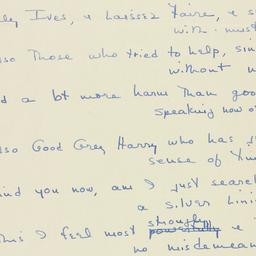 Ives, & Laissez Faire, &
with
Those who tried to help,
without
a bt more harm than goo
speaking now o
so Good Grey Harry who has
sense of
ind you now, am I just search
a silver lini
his I feel most strongly powerfully &
no misdemean